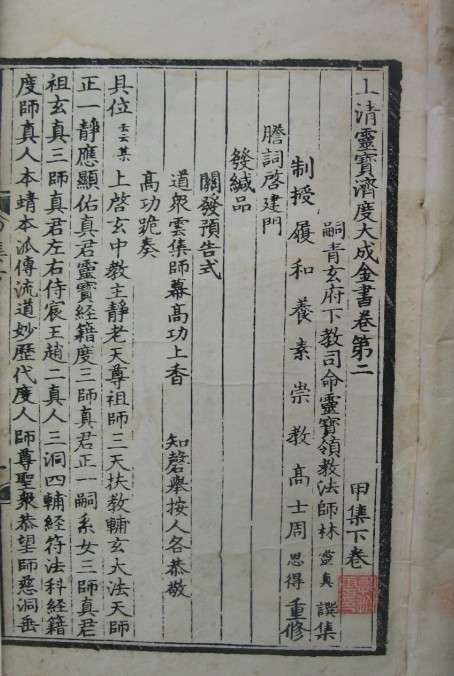 上清靈寶濟度大成金書卷第二　甲集下卷
嗣青玄府下教司命靈寶領教法師林靈真 譔集
制授履和養素崇教高士周思得重修
謄詞啓建門
發緘品
關發預告式
道衆雲集師幕高功上香　知磬舉按人各恭敬
高功跪奏
具位 某 上啓玄中教主靜老天尊祖師三天扶教輔玄大法天師
正一靜應顯佑真君靈寶經籍度三師真君正一嗣系女三師真君
祖玄真三師真君左右侍宸王趙二真人三洞四輔経符法科経籍
度師真人本靖本派傳流道妙歷代度人師尊聖衆恭望師慈洞垂